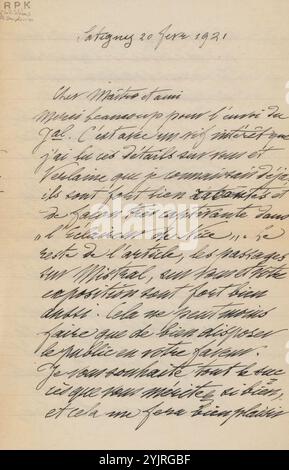 RPK
Satigny 20 févr 1921
Cher Maître et ami
Merci beaucoup pour l'envoi du
Gal. C'est avec un vif intérêt que
j'ai lu ces détails sur vous et
Verlaine que je connaissais déjà
ils sont fort bien racontés et
de façon très captivante dans
Le
reste de l'article, les passages
sur Mistral, sur vous et votre
exposition sont fort bien
aussi. Cela ne peut vous
faire que de bien disposer
le public en votre faveur.
Je vous souhaite tout le suc
cès que vous méritez, si bien,
et cela me fera bien plaisir
alamy
Image ID: 2YJRGBF
www.alamy.com